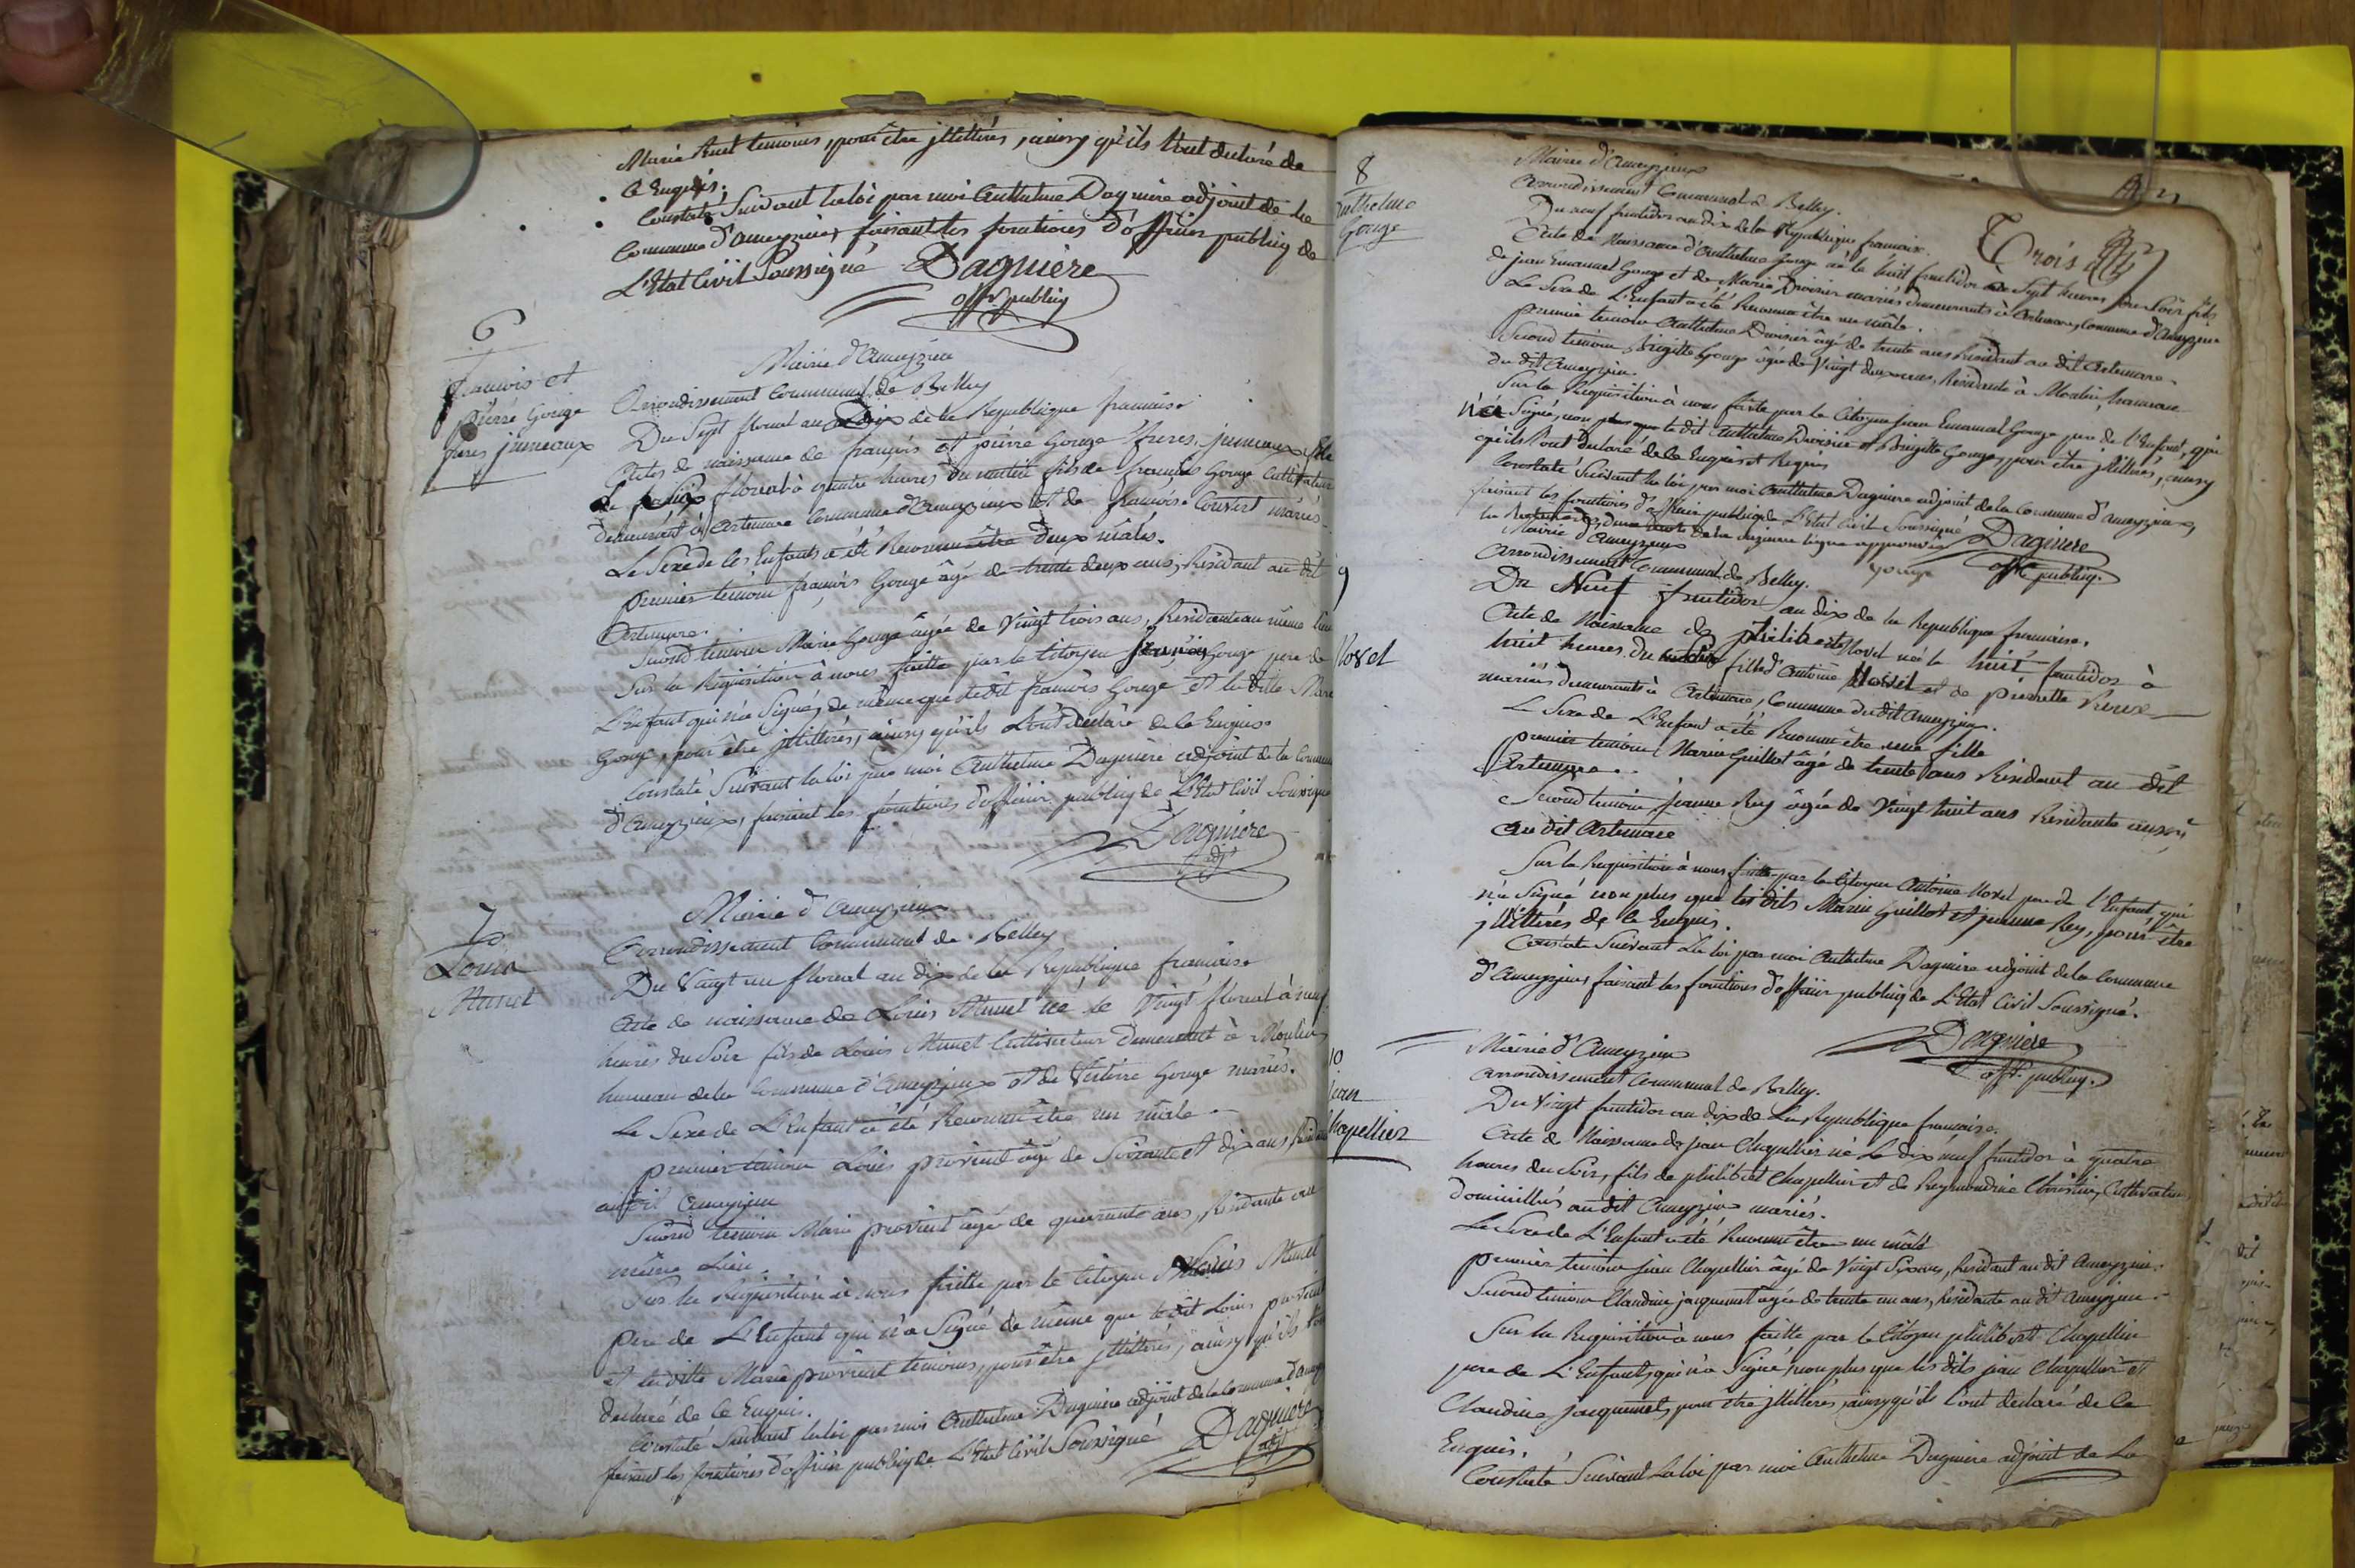 Marie Ruet temoins, pour être jllittérés, ainsy qu'ils l'ont declaré de
ce Enquis.
Constaté Suivant la loi par moi Anthelme Dagniere adjoint de la
Commune d'Ameyzieu, faisant les fonctions d'officier publiq de
L'Etat Civil Soussigné Dagniere
offr publiq
6
francois et
pierre Gouge
freres jumeaux
Mairie d'Ameyzieu
Arrondissement Communal de Belley
Du Sept floreal an Dix de la Republique francaise
Actes de naissance de françois et pierre Gouge freres, jumeaux
floreal à quatre heures du matin fils de françois Gouge Cultivateur
demeurant à Artemare Commune d'Ameyzieux et de francoise Convert mariés
Le Sexe de les Enfants a été Reconnu être deux mâles.
premier temoin françois Gouge âgé de trente deux ans, Résidant au dit
Artemare.
Second temoin Marie Gouge âgée de Vingt trois ans, Residante au même lieu
Sur la Réquisition à nous faitte par le Citoyen françois Gouge pere de
L'Enfant qui n'a Signé, de même que le dit françois Gouge et la ditte Marie
Gouge, pour être jllittérés, ainsy qu'ils L'ont declaré de ce Enquis.
Constaté Suivant la loi par moi Anthelme Dagniere adjoint de la Commune
d'Ameyzieux, faisant les fonctions d'officier publiq de L'Etat Civil Soussigné
Dagniere
adjt
7
Louis
Munet
Mairie d'Ameyzieu
Arrondissement Communal de Belley
Du Vingt un floreal an dix de la Republique francaise
Acte de naissance de Louis Munet né le Vingt floreal à neuf
heures du Soir fils de Louis Munet Cultivateur demeurant à Moulin
hameau de la Commune d'Ameyzieux et de Gouge mariés.
Le Sexe de L'Enfant a été Reconnu être un mâle
premier temoin Louis provient âgé de Soixante et dix ans, Résidant
au dit Ameyzieu
Second temoin Marie provient âgée de quarante ans, Residante au
même Lieu.
Sur la Réquisition à nous faitte par le Citoyen Louis Munet
pere de L'Enfant qui n'a Signé de même que le dit Louis provient
et la ditte Marie provient temoins, pour être jllittérés, ainsy qu'ils l'ont
declaré de ce Enquis.
Constaté Suivant la loi par moi Anthelme Dagniere adjoint de la Commune d'Ameyz
faisant les fonctions d'officier publiq de L'Etat Civil Soussigné Dagniere
adjt
8
Anthelme
Gouge
Trois
Mairie d'Ameyzieux
Arrondissement Communal de Belley.
Du neuf fructidor an dix de la Republique francaise.
Acte de Naissance d'Anthelme Gouge né le huit fructidor à Sept heures du Soir fils
de jean Emanuel Gouge et de Marie Divisier mariés demeurants à Artemare, Commune d'Ameyzieu
Le Sexe de L'Enfant a été Reconnu être un mâle.
premier temoin Anthelme Divisier âgé de trente ans Résidant au dit Artemare.
Second temoin Brigitte Gouge âgée de Vingt deux ans, Residante à Moulin hameau
du dit Ameyzieu.
Sur la Requisition à nous faite par le Citoyen jean Emanuel Gouge pere de l'Enfant, qui
n'a Signé, non plus que le dit Anthelme Divisier et Brigitte Gouge, pour être jllittérés, ainsy
qu'ils l'ont declaré de ce Enquis et Requis
Constaté Suivant la loi par moi Anthelme Dagniere adjoint de la Commune d'Ameyzieux,
faisant les fonctions d'officier publiq de L'Etat Civil Soussigné
de la ligne approuvée Dagniere
gouge offr publiq.
9
Novel
Mairie d'Ameyzieux
Arrondissement Communal de Belley.
Du Neuf fructidor an dix de la Republique francaise.
Acte de Naissance de philiberte Novel née le huit fructidor à
huit heures du fille d'Antoine Novel et de pierrette Reux
mariés demeurants à Artemare, Commune du dit Ameyzieu.
Le Sexe de L'Enfant a été Reconnu être une fille
premier temoin Marin Guillot âgé de trente ans Résidant au dit
Artemare.
Second temoin jeanne Rey âgée de Vingt huit ans Residante aussi
au dit Artemare
Sur la Requisition à nous faitte par le Citoyen Antoine Novel pere de l'Enfant qui
n'a Signé non plus que les dits Marin Guillot et jeanne Rey, pour être
jllittérés de ce Enquis.
Constaté Suivant la loi par moi Anthelme Dagniere adjoint de la Commune
d'Ameyzieux, faisant les fonctions d'officier publiq de L'Etat Civil Soussigné.
Dagniere
offr. publiq.
10
jean
Chapellier
Mairie d'Ameyzieux
Arrondissement Communal de Belley.
Du Vingt fructidor an dix de La Republique francaise.
Acte de Naissance de jean Chapellier né Le dix neuf fructidor à quatre
heures du Soir, fils de philibert Chapellier et de Reymondine Christin, Cultivateurs
domiciliés au dit Ameyzieux mariés.
Le Sexe de L'Enfant a été Reconnu être un mâle
premier temoin jean Chapellier âgé de Vingt Six ans, Residant au dit Ameyzieu.
Second temoin Claudine jacquemet âgée de trente un ans, Résidante au dit Ameyzieu.
Sur la Requisition à nous faitte par le Citoyen philibert Chapellier
pere de L'Enfant, qui n'a Signé, non plus que les dits jean Chapellier et
Claudine jacquemet, pour être jllittérés, ainsy qu'ils l'ont declaré de ce
Enquis.
Constaté Suivant La loi par moi Anthelme Dagniere adjoint de La